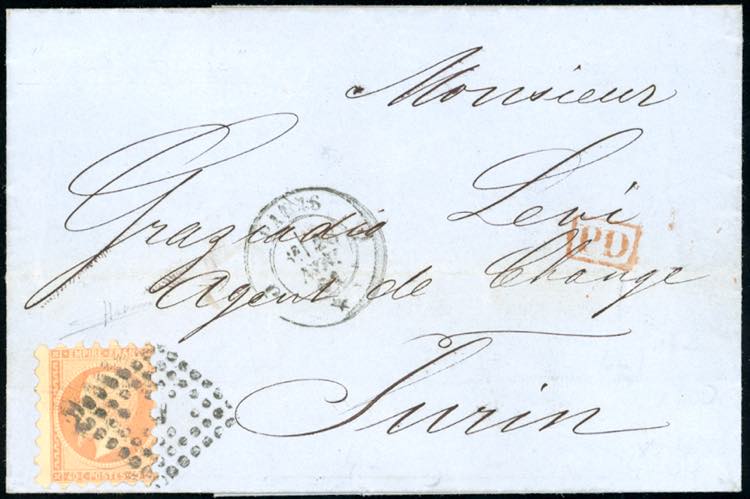 Monsieur
Graziadio Levi
PD
Agent de Change
Turin
PARIS
EMPIRE FRANC
40 C POSTES 40